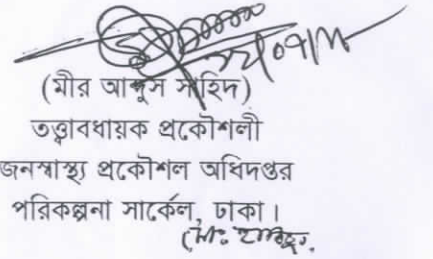 (মীর আব্দুস সাহিদ)
তত্ত্বাবধায়ক প্রকৌশলী
জনস্বাস্থ্য প্রকৌশল অধিদপ্তর
পরিকল্পনা সার্কেল, ঢাকা।